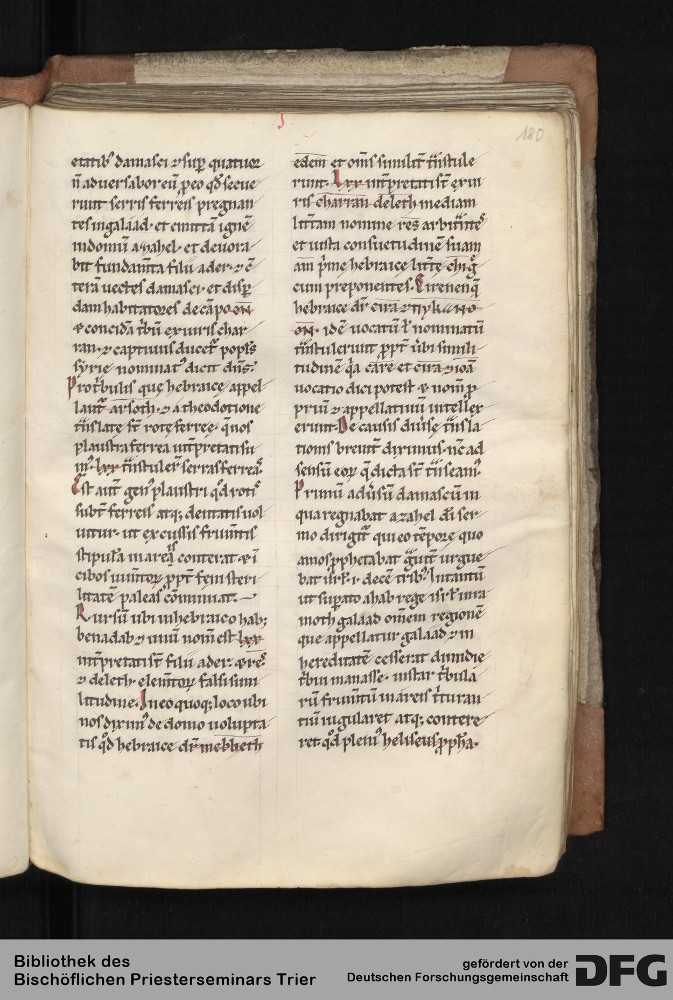 180
etatib᷒ damasci ⁊ sup̄ quatuor
n̄ adversabor eū ꝑeo qd̄ secue
runt serris ferreis pregnan
tes in galaad · et emittā ignē
in domū azahel · et devora
bit fundam̄ta filii ader · ⁊ c̄
terā vectes damasci · et disp̄
dam habitatores de cāpo on
⁊ concidā t̄bū ex viris char
ran · ⁊ captivus ducet᷒ popl̄s
syrie nominat᷒ dicit dn̄s ·
Pro t̄bulis que hebraice appel
lant᷒ arsoth · ⁊ a theodotione
t̄nslate st̄ rote ferree · q̄nos
plaustra ferrea int̄pretati su
m᷒ · lxx t̄nstuler̄ serras ferreas
Est aut̄ gen᷒ plaustri qd̄ rotis
subt̄ ferreis atq; dentatis vol
vitur · ut excussis frum̄tis
stipulā in areis conterat · ⁊ ī
cibos iumtoꝝ ꝓpt̄ feni steri
litatē paleas cōminuat ·
Rursū ubi in hebraico hab;
benadab ⁊ unū nom̄ est · lxx
int̄pretati st̄ filii ader · ⁊ res
⁊ deleth · elem̄toꝝ falsi simi
litudine · In eo quoq; loco ubi
nos dixim᷒ de domo volupta
tis qd̄ hebraice dr̄ mebbeth
edem et om̄s similit̄ t̄nstule
runt · Lxx int̄pretati st̄ ex vi
ris charran deleth mediam
litt̄am nomine res arbitrātes
et iuxta consuetudinē suam
am p̄me hebraice litt̄e chi g̃
cum preponentes ·
hebraice dr̄
on · idē vocatū ł nominatū
t̄nstulerunt ꝓpt̄ v̄bi simili
tudinē
vocatio dici potest ⁊ nom̄ ꝓ
priū ⁊ appellativū intellex
erunt · De causis div̄se t̄nsla
tionis brevit̄ diximus · nc̄ ad
sensū eoꝝ q̄ dicta st̄ t̄nseam᷒ ·
Primū adv̄sū damascum in
qua regnabat azahel dn̄i ser
mo dirigit᷒ qui eo tēpore quo
amos ꝓphetabat g̃vit̄ urgue
bat isr̄l · i · decē trib᷒ · In tantū
ut sup̄ato ahab rege isr̄l in ra
moth galaad om̄em regionē
que appellatur galaad ⁊ in
hereditatē cesserat dimidie
t̄bui manasse · instar t̄bula
rū frum̄tū in areis t̄turan
tiū iugularet atq; contere
ret · qd̄ pleni᷒ heliseus ꝓph̄a ·
Bibliothek des
Bischöflichen Priesterseminars Trier
gefördert von der
Deutschen Forschungsgemeinschaft
DFG